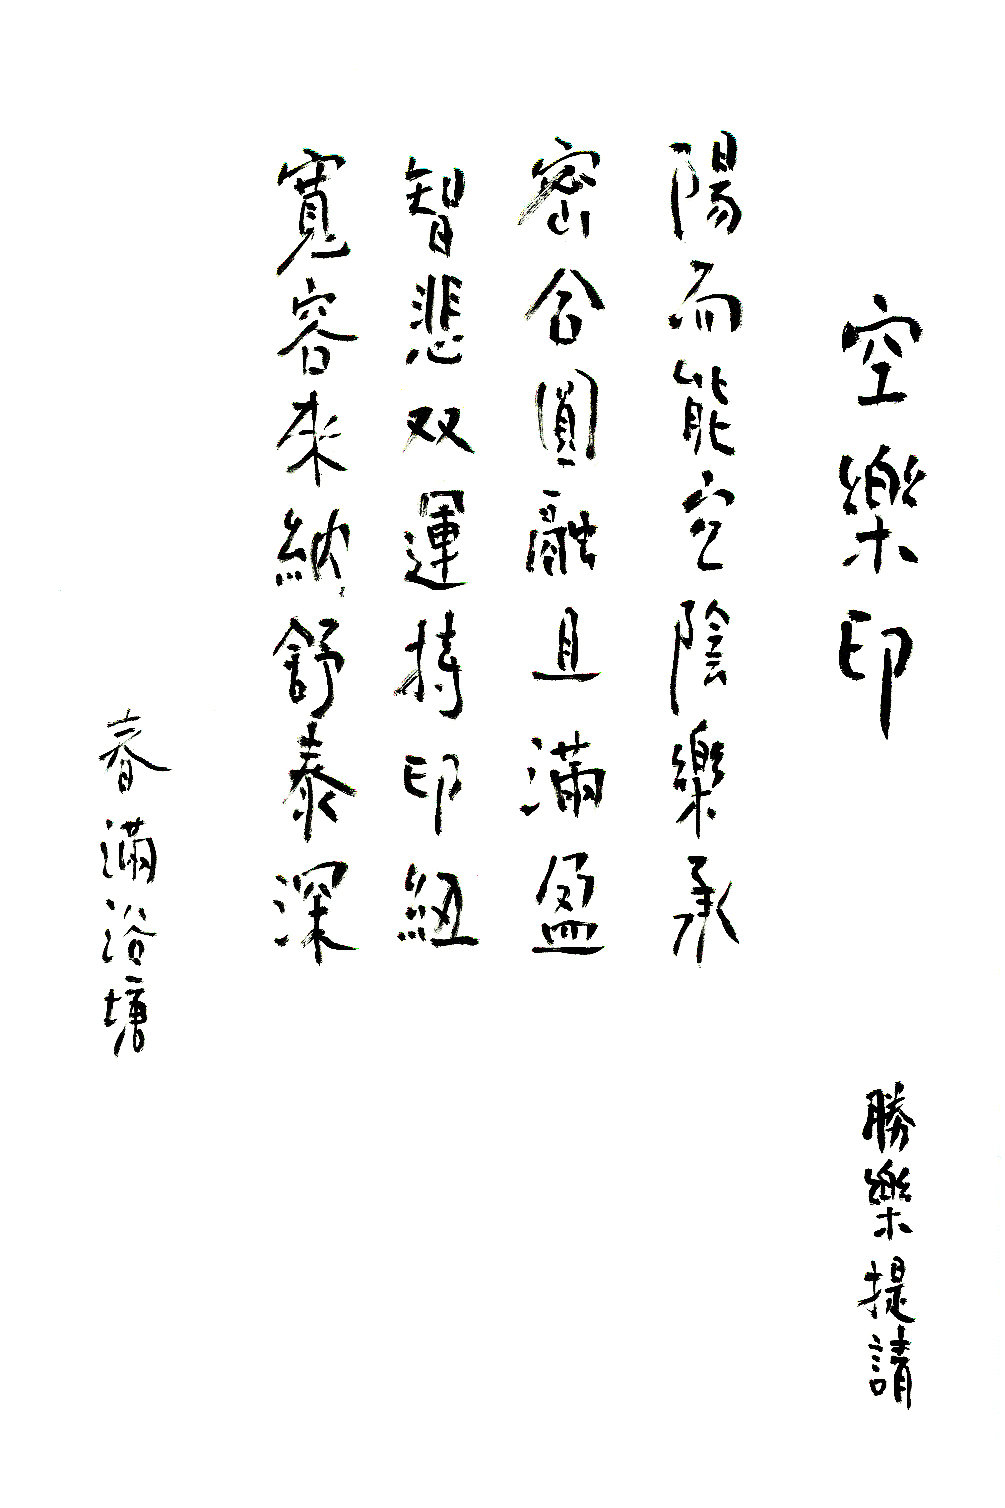 空樂印
勝樂提請
陽而能空陰樂承
密合圓融且滿盈
智悲双運持印紐
寬容來納舒泰深
春滿浴塘